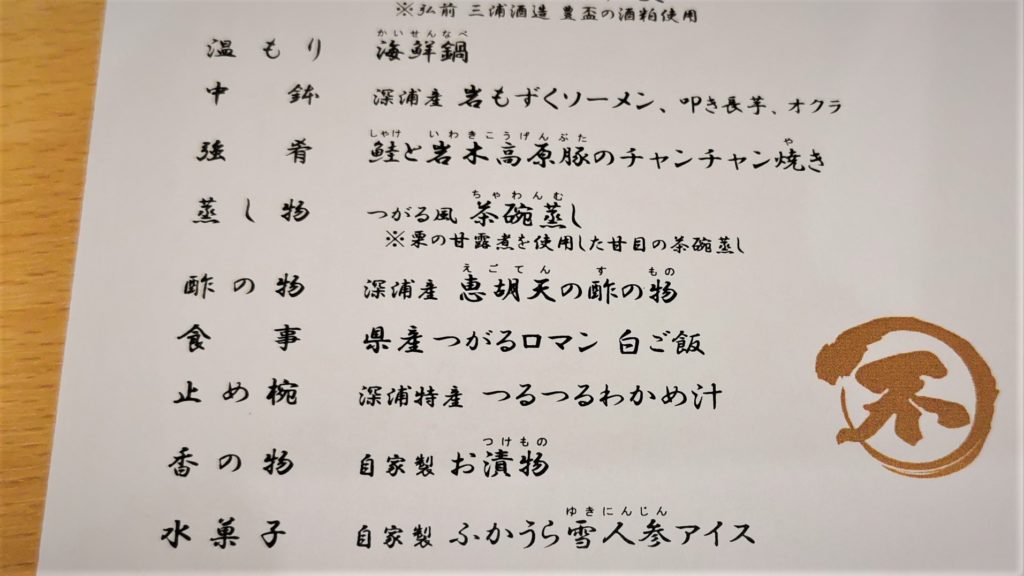 ※弘前 三浦酒造 豊盃の酒粕使用
かいせんなべ
温もり 海鮮鍋
中鉢 深浦産 岩もずくソーメン、叩き長芋、オクラ
しゃけ いわきこうげんぶた や
強肴 鮭と岩木高原豚のチャンチャン焼き
ちゃわんむ
蒸し物 つがる風 茶碗蒸し
※栗の甘露煮を使用した甘目の茶碗蒸し
えごてん す もの
酢の物 深浦産 恵胡天の酢の物
食事 県産つがるロマン 白ご飯
止め椀 深浦特産 つるつるわかめ汁
つけもの
香の物 自家製 お漬物
ゆきにんじん
水菓子 自家製 ふかうら雪人参アイス
不